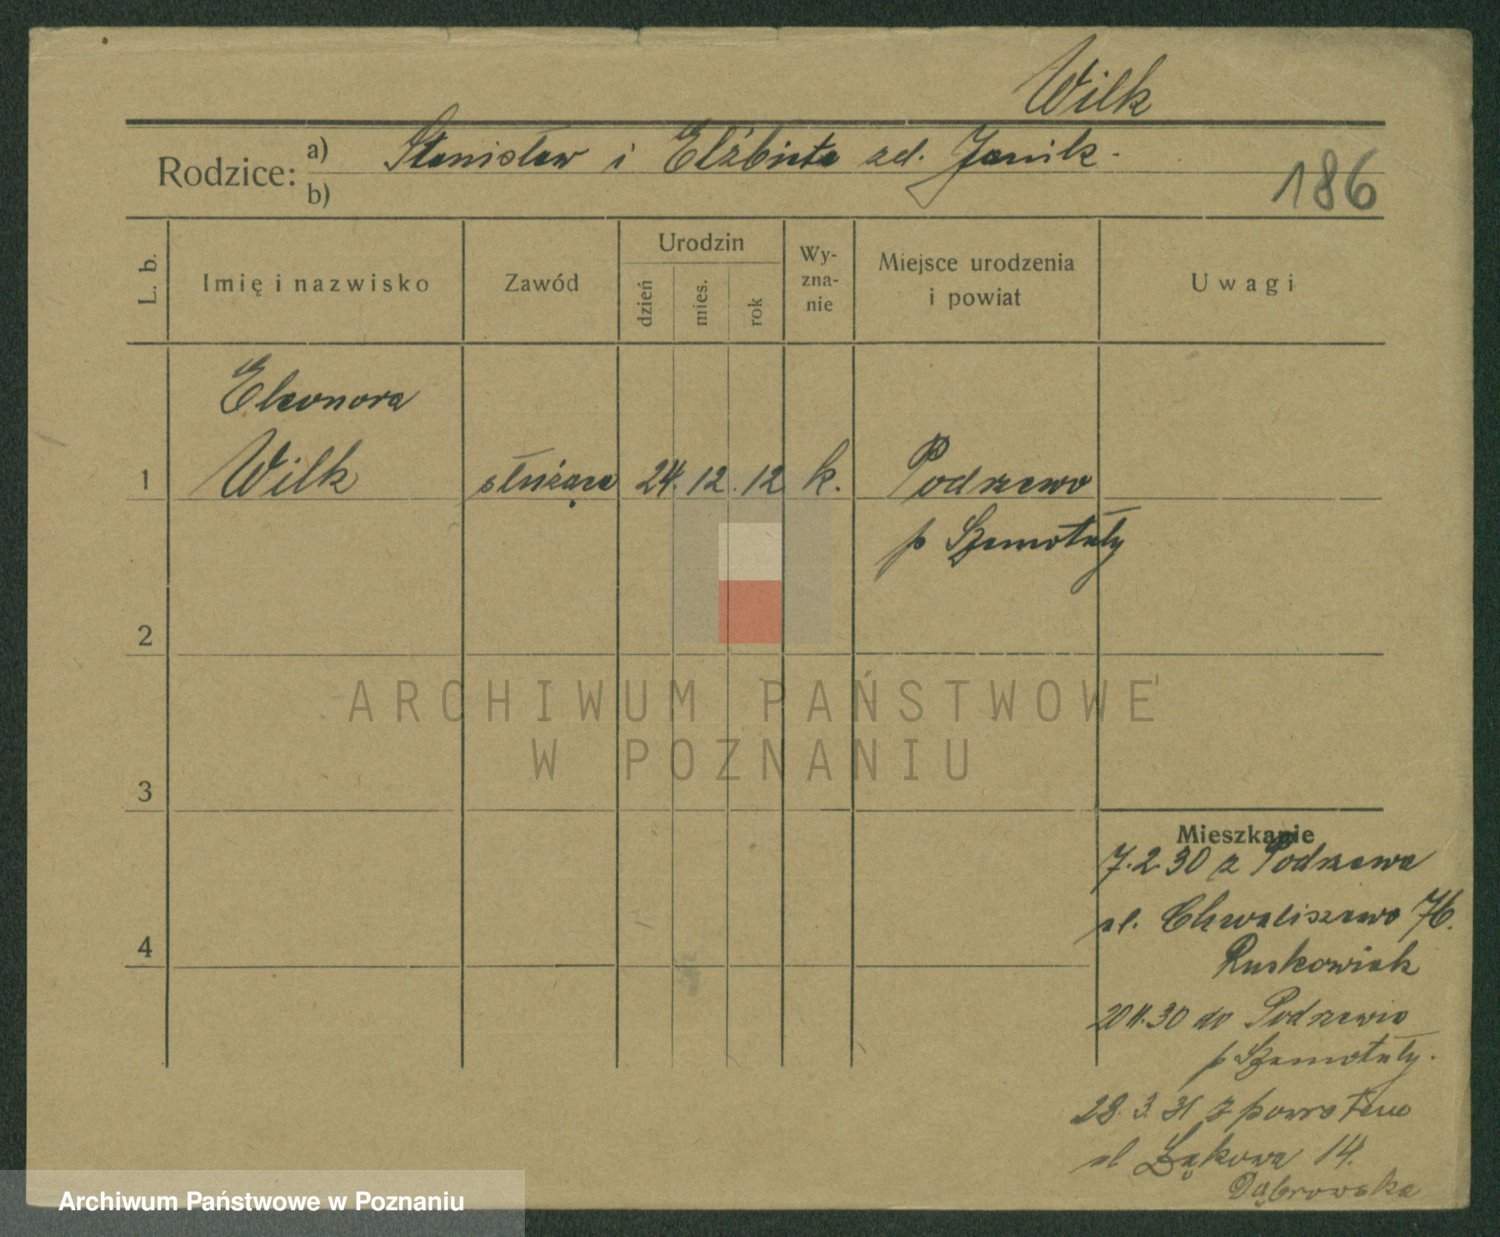 Wilk
Rodzice: a) Stanisław i Elżbieta zd. Janik.
b)
186
L. b.
Imię i nazwisko
Zawód
Urodzin
dzień
mies.
rok
Wy-
zna-
nie
Miejsce urodzenia
i powiat
Uwagi
Eleonora
1 Wilk służąca 24. 12. 12 k. Podrzewo
p Szamotuły
2
3
4
Mieszkanie
7.2.30 z Podrzewa
ul. Chwaliszewo 76.
Ruskowiak
20 11.30 do Podrzewia
p Szamotuły.
28. 3. 31 z powrotem
ul Łąkowa 14.
Dąbrowska
ARCHIWUM PAŃSTWOWE
W POZNANIU
Archiwum Państwowe w Poznaniu